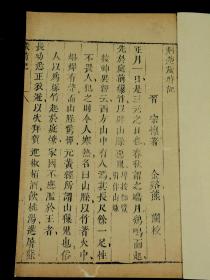 荊楚歲時記
晉 宗懍著 金谿熊 蘭校
正月一日是三元之日也春秋謂之端月雞鳴而起
先於庭前爆竹以辟山臊惡鬼
按神異經云西方山中有人焉其長尺餘一足性
不畏人犯之則令人寒熱名曰山臊以竹著火中
有聲而山臊驚憚元黃經所謂山鬼也俗
人以為爆竹起於庭燎家國不應濫於王者
長幼悉正衣冠以次拜賀進椒柏酒飲桃湯進屠蘇